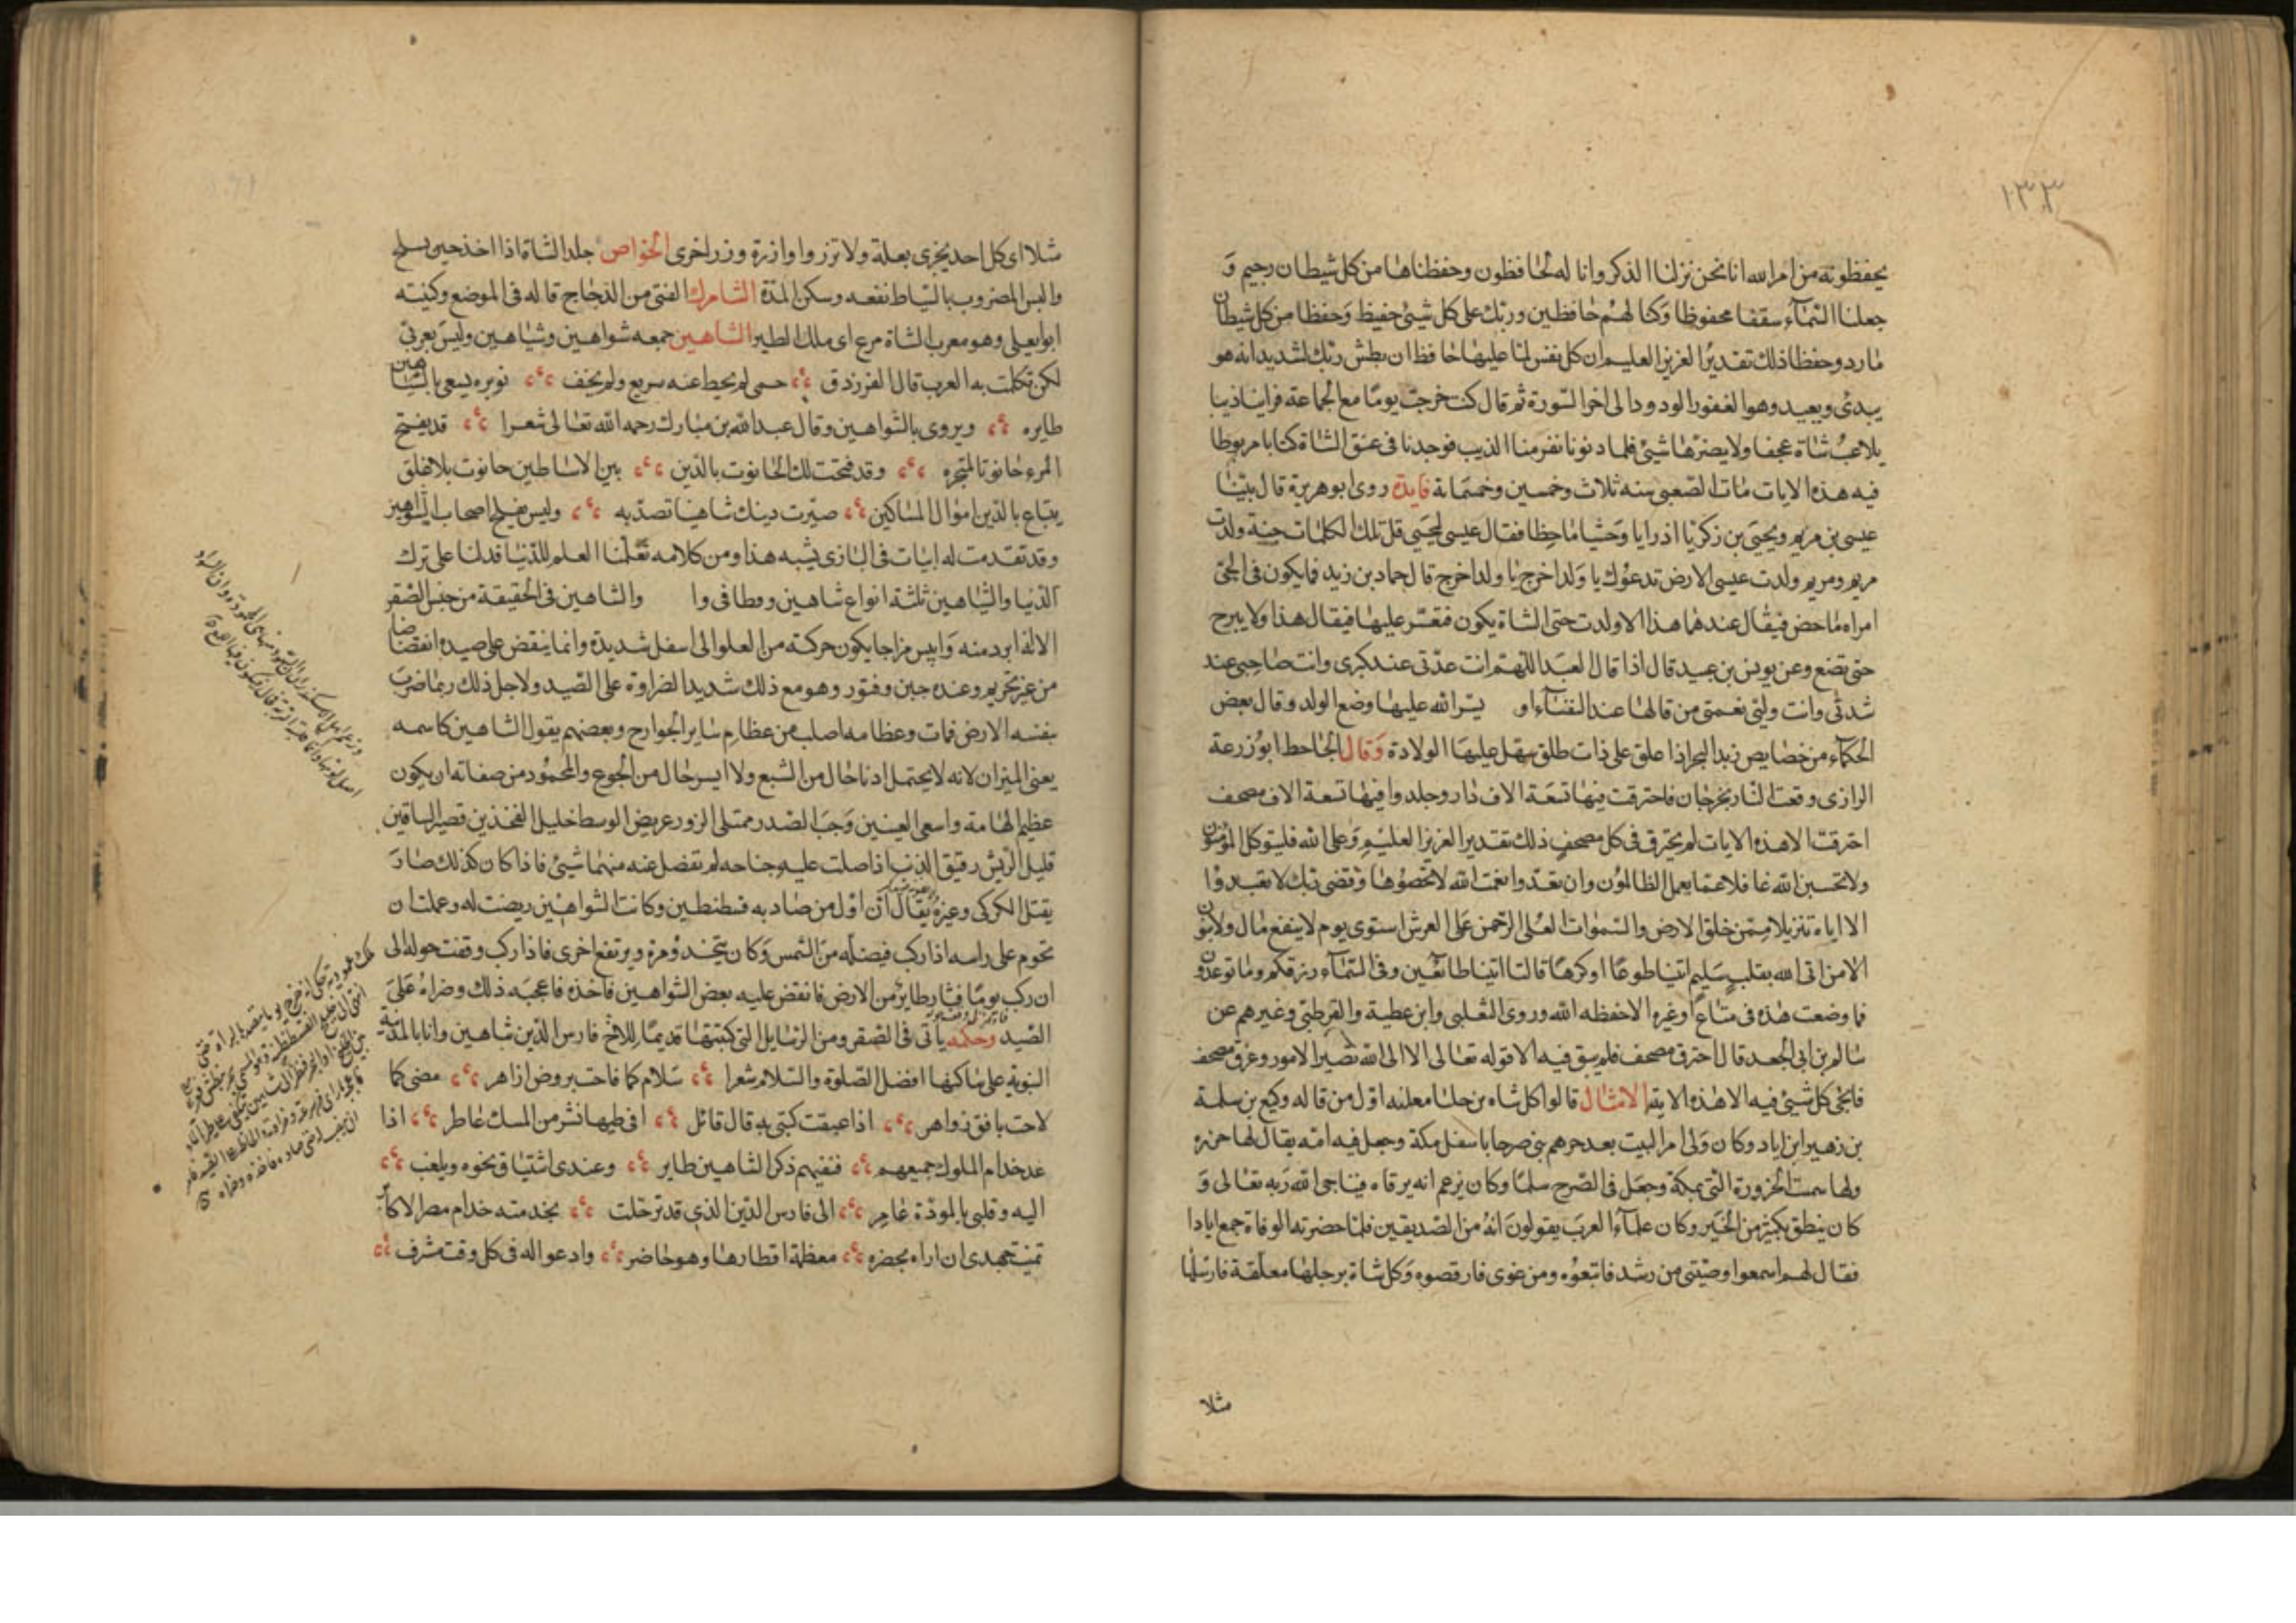 ١٣٣
يحفظونه من امر الله انا نحن نزلنا الذكر وانا له لحافظون وحفظناها من كل شيطان رجيم وَ
جعلنا السّمآء سقفا محفوظا وَكنا لهُم حَافظين وربّك على كل شيئ حفيظ وَحفظا من كل شيطان
مَارد وحفظا ذلك تقديرُ العزيز العليم ان كل نفس لمّا عليهَا حَافظ ان بطش ربّك لشديد انه هو
يبدئ ويعيد وهو الغفور الودود الى اخر السّورة ثم قال كنت خرجت يومًا مع الجماعة فراينا ذيبا
يلاعبُ شاة عجفا ولا يضرّها شيئ فلما دنونا نفر منا الذيب فوجدنا فى عنق الشاة كتابا مربوطا
فيه هذه الايات مات الصّعبى سنه ثلاث وخمسين وخمسَماية فايدة روى ابو هريرة قال بيّنا
عيسى بن مريم ويحيَى بن زكريّا اذ رايا وَحشيا مَاخِضا فقال عيسى ليحيَى قل تلك الكلمات حنة ولدت
مريم ومريم ولدت عيسى الارض تدعوُك يا وَلد اخرج يَا ولد اخرج قال حماد بن زيد فما يكون فى الحى
امراه مَاخض فيقال عندهَا هذا الا ولدت حتى الشاة يكون فتعسّر عليهَا فيقال هذا ولا يبرح
حتى تضع وعن يونس بن عبيد قال اذا قال العبَد اللهّم انت عدّتى عند كربى وانت صَاحبِى عند
شدتى وانت ولىّ نعمتى من قالهَا عند النفسَآء او يسّر الله عليهَا وضع الولد وقال بعض
الحكمآء من خصايص زبد البحر اذا علق على ذات طلق سهَل عليهَا الولادة وَقال الجَاحظ ابوُ زرعة
الرازى وقعت النّار بجرجَان فاحترقت فيهَا تسعَة الاف دَار وجلد وافيهَا تسعة الاف مصحف
احترقت الا هذه الايات لم يحترق فى كل مصحف ذلك تقدير العزيز العليْم وَعلى الله فليتوكل المؤمنوُن
ولا تحسبن الله غافلا عمّا يعمل الظالموُن وان تعدّوا نعمت الله لا تحصوُهَا وَقضى ربّك لا تعبدوُا
الا اياه تنزيلا ممّن خلق الارض والسّموات العُلى الرّحمن عَلى العرش استوى يوم لا ينفع مَال ولا بنوُن
الا من اتى الله بقلب سَليم ائتيا طوعًا او كرهًا قالتا اتينا طائعين وفى السّمآء رزقكم ومَا توعدُون
فما وضعت هذه فى متاع اوغيره الا حفظه الله وروى الثعَلبى وابن عطية والقرطبىّ وغيرهم عن
سَالم بن ابى الجعد قال احترق مصحف فلم يبق فيه الا قوله تعَالى الا الى الله تصَير الامور وغرق مصحف
فامحى كل شيئ فيه الا هَذه الاية الامثال قالوا كل شاه برجلهَا معلقه اوّل من قاله وكيع بن سلمة
بن زهير ابن اياد وكان وَلى امر البيت بعد جرهم بنى صرحا باسفل مكة وجعل فيه امة يقال لهَا حزورة
ولهَا سميت الحزورة التى بمكة وجعَل فى الصّرح سلمًا وكان يزعم انه يرقاه فيناجى الله رَبه تعَالى وَ
كان ينطق بكثيرُ من الخَير وكان علمآءُ العرَب يقولونَ انهُ من الصّديقين فلمّا حضرته الوفاة جمع ايادا
فقال لهُم اسمعوا وصيّتى من رشد فاتبعوُه ومن غوى فارفضوه وَكل شاة برجلهَا معلّقة فارسَلهَا
مثلا
مثلا اى كل احد يجزى بعمله ولا تزر وازرة وزر اخرى الخواص جلد الشاة اذا اخذ حين يسلخ
والبس المضروب بالسّياط نفعه وسكن المدّة الشامرك الفتى من الدّجاج قاله فى الموضع وكنيته
ابو يعلى وهو معرب الشاة مرغ اى ملك الطير الشّاهين جمعه شواهين وشيَاهين وليسَ بعربىّ
لكن تكلمت به العرب قال الفرزدق حمى لم يحط عنه سريع ولم يخف نويره يسعى بالشّياهين
طايره ويروى بالشّواهين وقال عبد الله بن مبَارك رحمه الله تعَالى شعرا قد يفتح
المرء حَانوتا لمتجره وقد فتحت لك الحَانوت بالدّين بين الاسَاطين حانوت بلا غلق
يبتاع بالدّين اموَال المسَاكين صيّرت دينك شاهينا تصَد به وليس يفلح اصحاب الشّواهين
وقد تقدمت له ابيات فى البَازى يشبه هذا ومن كلامه تعّلمنا العلم للدّنيَا فدلنا على ترك
الدّنيا والشّيَاهين ثلثة انواع شاهين وقطافى وا والشاهين فى الحَقيقة من جنسَ الصّقر
الا انه ابرد منه وَايبس مزاجا يكون حركته من العلو الى اسفل شديدة وانما ينقض على صيده انقضاضا
من غير تحريم وعنده جبن وفتور وهو مع ذلك شديد الضراوة على الصّيد ولاجل ذلك ربما ضرب
بنفسه الارض فمات وعظامه اصلب من عظامِ سَاير الجوارح وبعضهم يقول الشاهين كاسمه
يعنى الميزان لانه لا يحتمل ادنا حَال من الشبع ولا ايسر حَال من الجوع والمحموُد من صفاته ان يكون
عظيم الهَامة واسع العينين رحب الصّدر ممتلى الزور عريض الوسط جليل الفخذين قصير السّاقين
قليل الرّيش رقيق الذنب اذا صلبت عليه جناحه لم تفضل عنه منهما شيئ فاذا كان كذلك صَادَ
يقتل الكركى وغيره يُقال انّ اوّل من صَاد به قسطنطين وكانت الشّواهين ريضت له وعلمت ان
تحوم على راسه اذا ركب فيضلّه من الشّمس وَكان ينحدرُ مرة ويرتفع اخرى فاذا ركب وقفت حوله الى
ان ركب يومًا فثار طايرٌ من الارض فانقض عليه بعض الشّواهين فاخذه فاعجبَه ذلك وضراهُ عَلىَ
الصّيد وحكمه ياتى فى الصّقر ومن الرسَايل التى كتبتهَا قديمًا للاخ فارس الدّين شاهين وانا بالمدينة
النبوية على سَاكنها افضل الصّلوة والسّلام شعرا سَلام كما فاحت بروض ازاهر مضى كما
لاحت بافق زواهر اذا عبقت كتبى به قال قائل افى طيها نشر من المسك عَاطر اذا
عد خدام الملوك جميعهم ففيهم ذكر الشاهين طاير وعندى اشتيَاق نحوه ويلعب
اليه وقلبى بالمودّة غَامِر الى فارس الدّين الذى قد ترحلت بخدمته خدام مصر الاكابر
تمنيت جهدى ان اراه بحضره معظمة اقطارهَا وهو حَاضر وادعو اله فى كل وقت مشرف